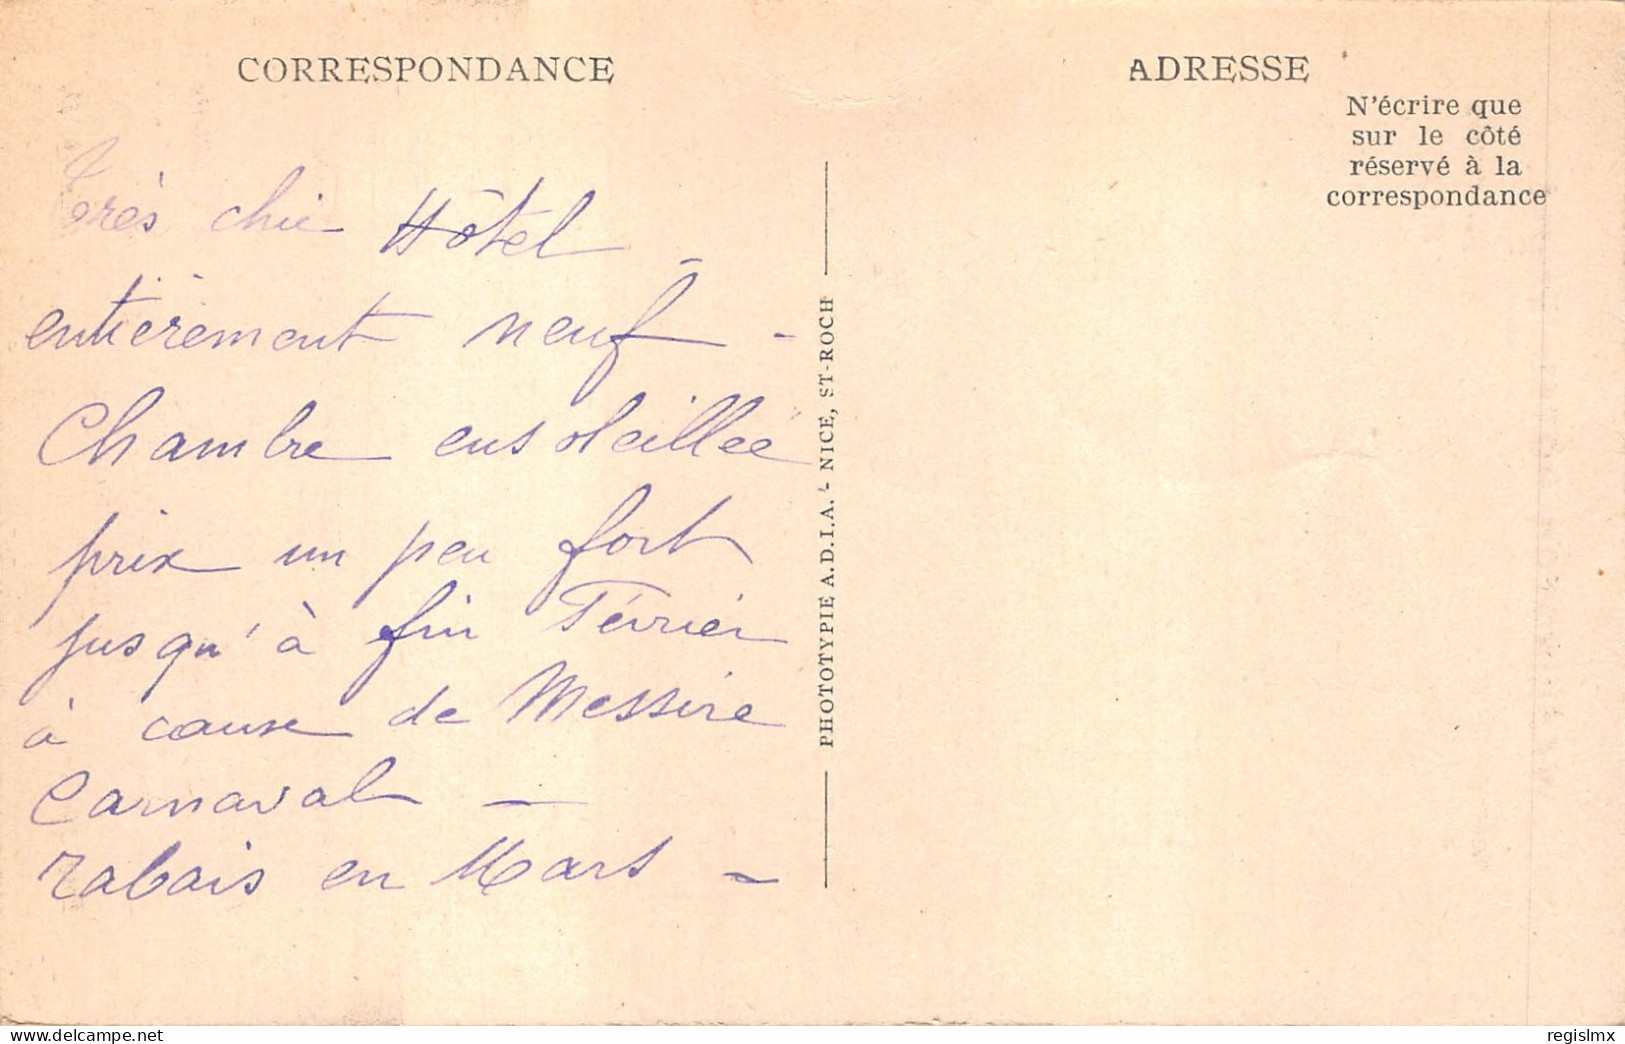 CORRESPONDANCE
Très chic Hôtel -
entièrement neuf -
Chambre ensoleillée
prix un peu fort
jusqu'à fin Février
à cause de Messire
Carnaval —
rabais en Mars -
PHOTOTYPIE A.D.I.A. - NICE, ST-ROCH
ADRESSE
N'écrire que
sur le côté
réservé à la
correspondance
www.delcampe.net
regislmx